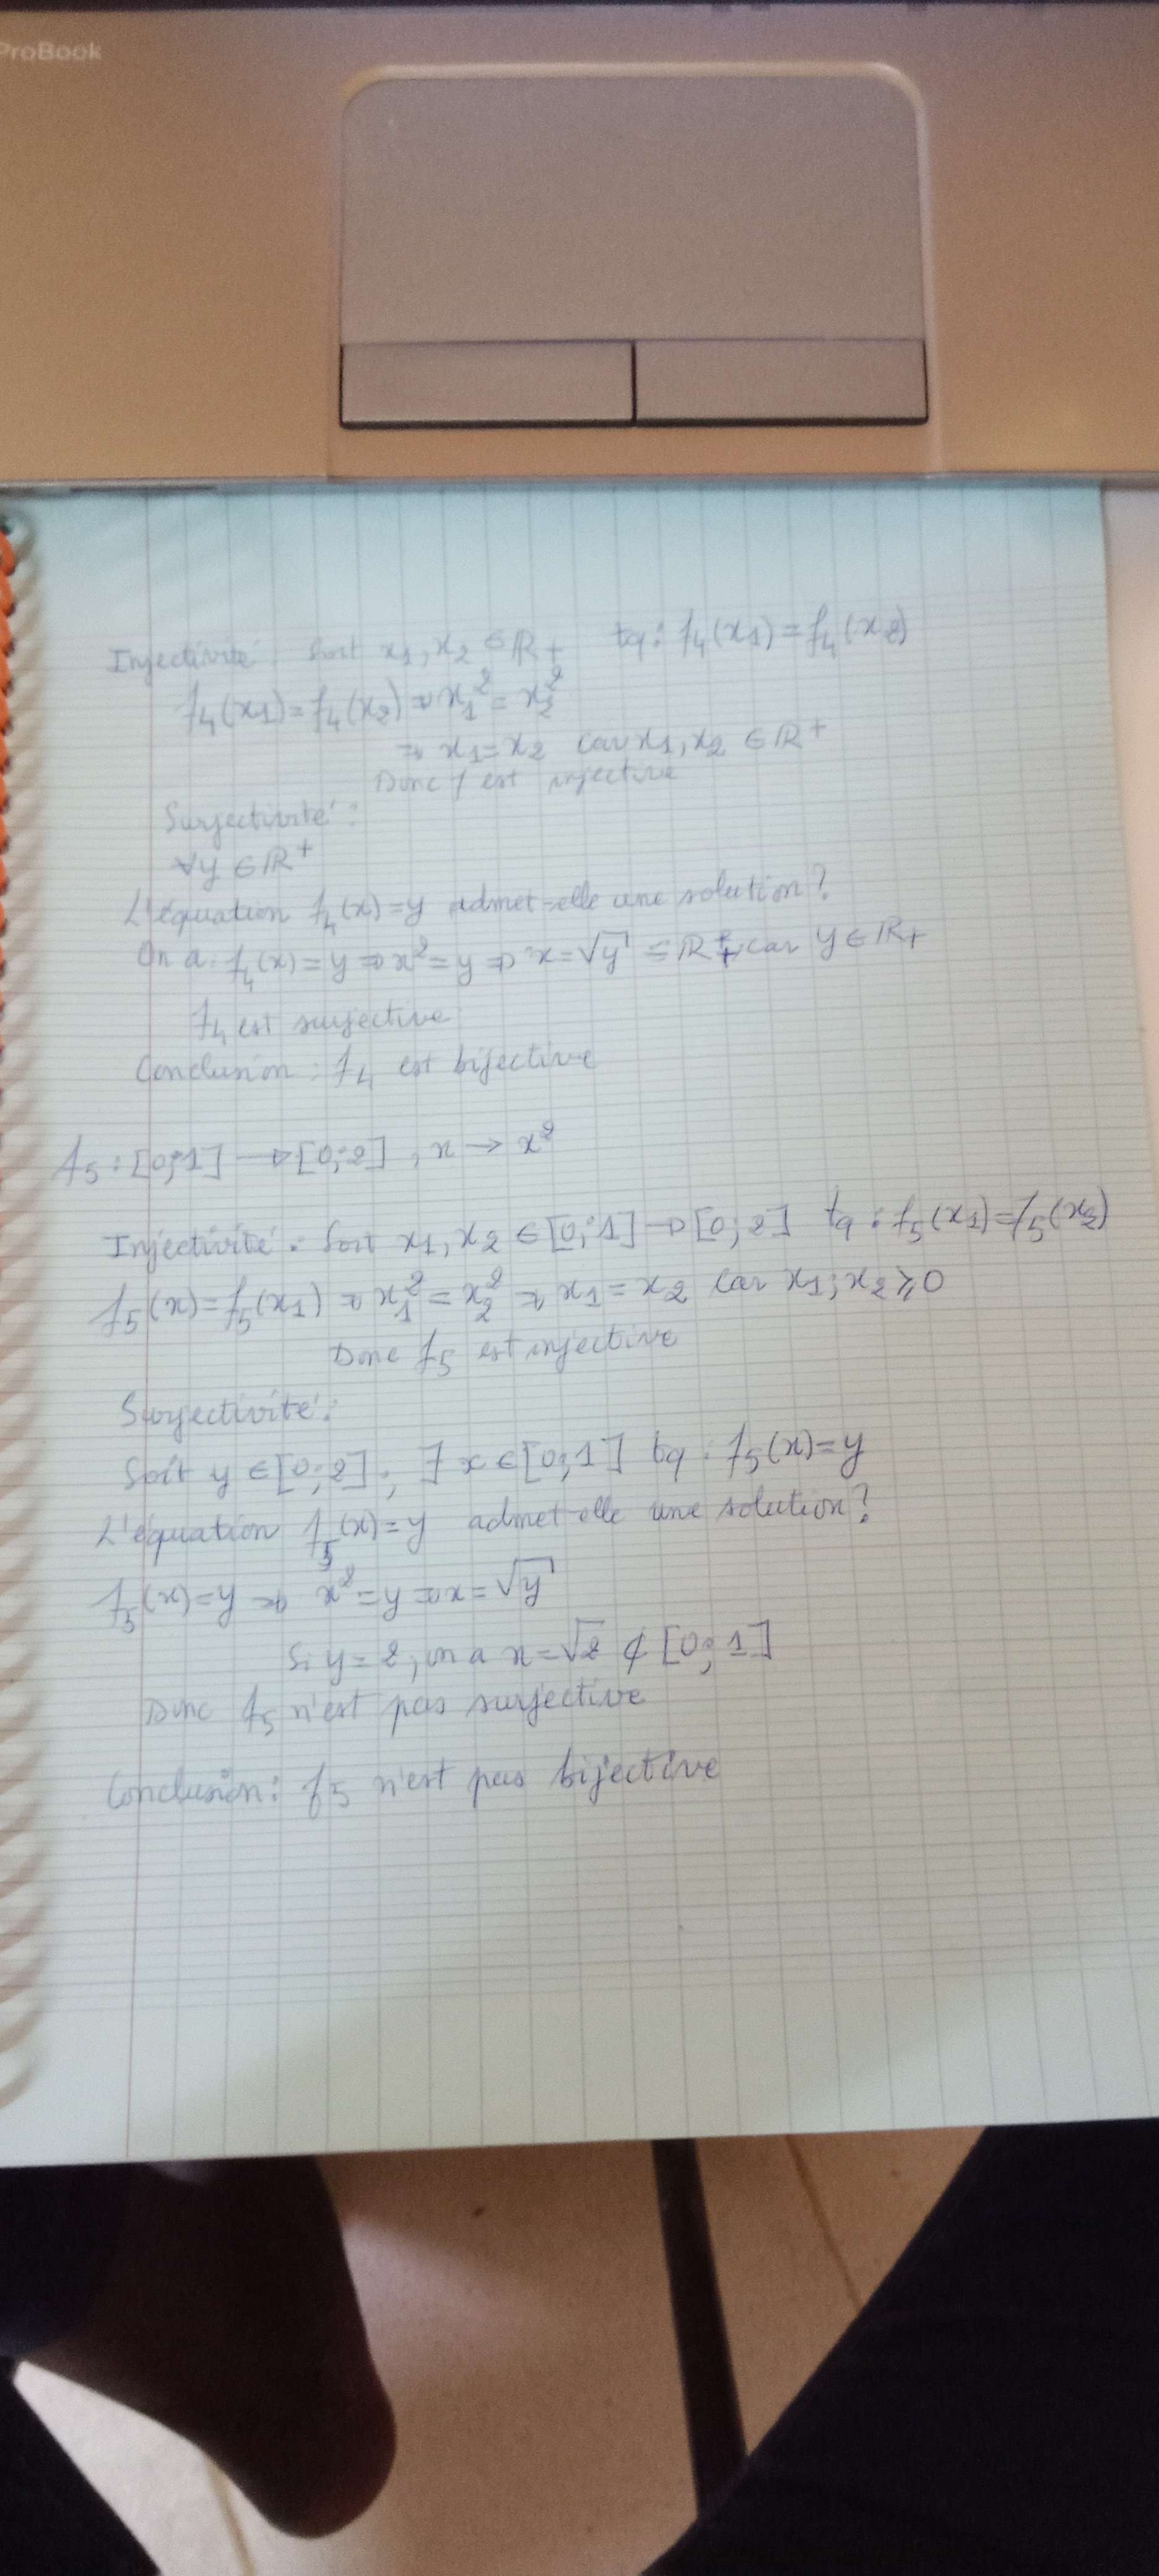 ProBook
Injectivité: Soit x1, x2 ∈ ℝ+ tq: f4(x1) = f4(x2)
f4(x1) = f4(x2) ⇒ x1² = x2²
⇒ x1 = x2 car x1, x2 ∈ ℝ+
Donc f est injective
Surjectivité:
∀y ∈ ℝ+
L'équation f4(x) = y admet-elle une solution?
On a: f4(x) = y ⇒ x² = y ⇒ x = √y ∈ ℝ+ car y ∈ ℝ+
f4 est surjective
Conclusion: f4 est bijective
f5: [0;1] → [0;2], x → x²
Injectivité: Soit x1, x2 ∈ [0;1] → [0;2] tq: f5(x1) = f5(x2)
f5(x) = f5(x1) ⇒ x1² = x2² ⇒ x1 = x2 car x1; x2 ⩾ 0
Donc f5 est injective
Surjectivité:
Soit y ∈ [0;2]; ∃ x ∈ [0;1] tq: f5(x) = y
L'équation f5(x) = y admet-elle une solution?
f5(x) = y ⇒ x² = y ⇒ x = √y
Si y = 2, on a x = √2 ∉ [0;1]
Donc f5 n'est pas surjective
Conclusion: f5 n'est pas bijective